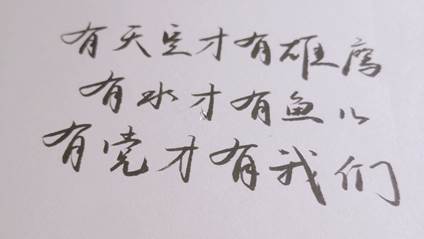 有天空才有雄鹰
有水才有鱼儿
有党才有我们